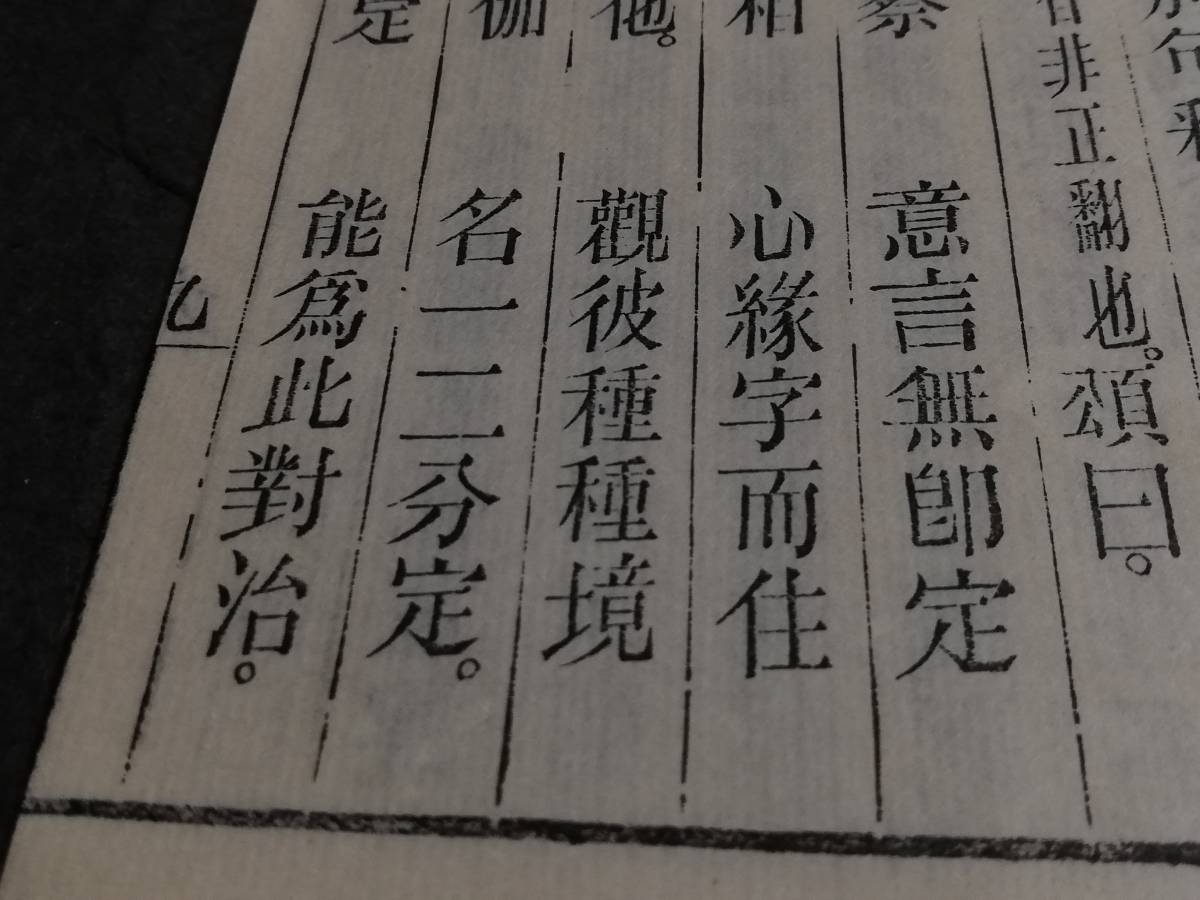 非正翻也。頌曰。
意言無卽定
心緣字而住
他。觀彼種種境
伽名一二分定。
定能爲此對治。